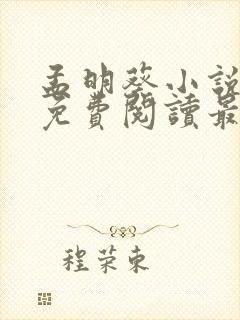 孟明葵小說
免費閱讀最
程荣東